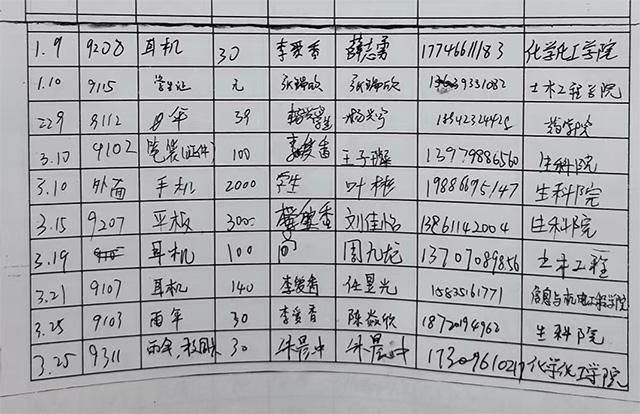 1.9 9208 耳机 30 李爱香 薛志勇 17746611183 化学化工学院
1.10 9115 学生证 元 张瑞欣 张瑞欣 39331082 土木工程学院
2.29 8112 伞 39 杨兴宇 18342324428 药学院
3.10 9102 包装(证件) 100 李爱香 王子璇 13979886560 生科院
3.10 外面 手机 2000 学生 叶 19886695147 生科院
3.15 9207 平板 3000 李爱香 刘佳怡 13861142004 生科院
3.19 耳机 100 同 周九龙 13707089856 土木工程
3.21 9107 耳机 140 李爱香 任昱光 15835161771 信息与机电工程学院
3.25 9103 雨伞 30 李爱香 陈欣 18720194962 生科院
3.25 9311 雨伞, 30 朱晨中 朱晨中 17309610219 化学化工学院